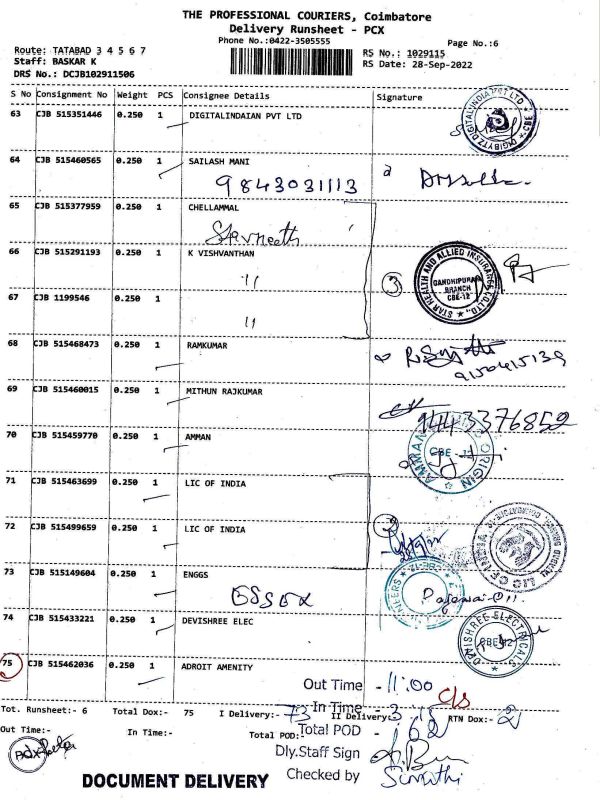 THE PROFESSIONAL COURIERS, Coimbatore
Delivery Runsheet - PCX
Phone No.:0422-3505555
Page No.:6
Route: TATABAD 3 4 5 6 7
Staff: BASKAR K
DRS No.: DCJB102911506
RS No.: 1029115
RS Date: 28-Sep-2022
S No Consignment No Weight PCS Consignee Details Signature
63 CJB 515351446 0.250 1 DIGITALINDAIAN PVT LTD
DIGIBYTZ DIGITALINDIA PVT LTD CBE
64 CJB 515460565 0.250 1 SAILASH MANI
9843031113
65 CJB 515377959 0.250 1 CHELLAMMAL
66 CJB 515291193 0.250 1 K VISHVANTHAN
11
STAR HEALTH AND ALLIED INSURANCE CO LTD.,
GANDHIPURAM
BRANCH
CBE-12
3
67 CJB 1199546 0.250 1
11
68 CJB 515468473 0.250 1 RAMKUMAR
9150415139
69 CJB 515460015 0.250 1 MITHUN RAJKUMAR
9443376852
70 CJB 515459770 0.250 1 AMMAN
AMMAN ORIGIN
CBE - 12
71 CJB 515463699 0.250 1 LIC OF INDIA
72 CJB 515499659 0.250 1 LIC OF INDIA
2
LIC OF INDIA
73 CJB 515149604 0.250 1 ENGGS
74 CJB 515433221 0.250 1 DEVISHREE ELEC
DEVISHREE ELECTRICALS
CBE-12
75 CJB 515462036 0.250 1 ADROIT AMENITY
Out Time - 11.00
c/s
Tot. Runsheet:- 6 Total Dox:- 75 I Delivery:- 73 In Time - 3 II Delivery: RTN Dox:- 2
Out Time:- In Time:- Total POD: Total POD - 162
Dly.Staff Sign
Checked by
DOCUMENT DELIVERY